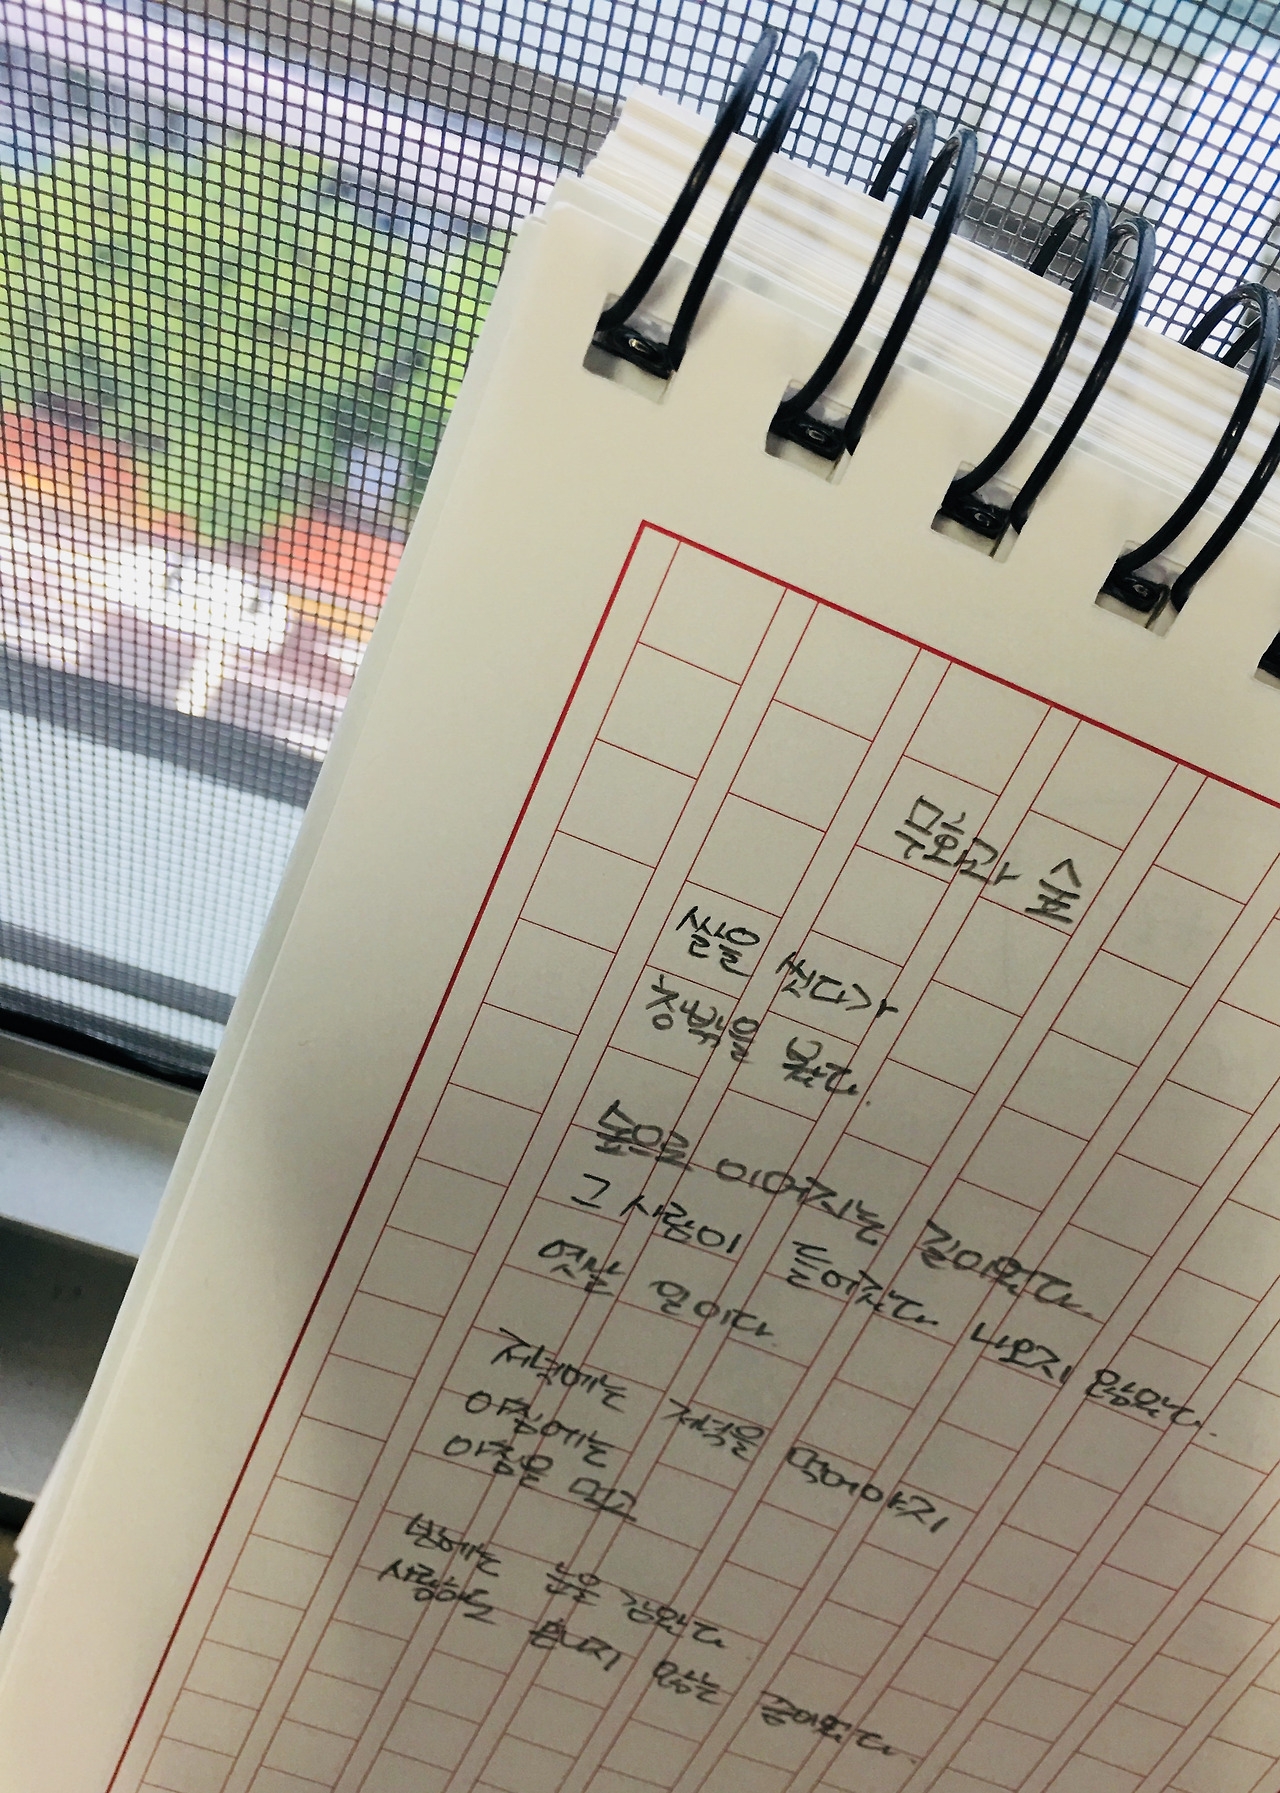 무화과 숲
쌀을 씻다가
창밖을 봤다.
숲으로 이어지는 길이었다.
그 사람이 들어갔다 나오지 않았다.
옛날 일이다.
저녁에는 저녁을 먹어야지
아침에는
아침을 먹고
밤에는 눈을 감았다
사랑해도 혼나지 않는 꿈이었다.